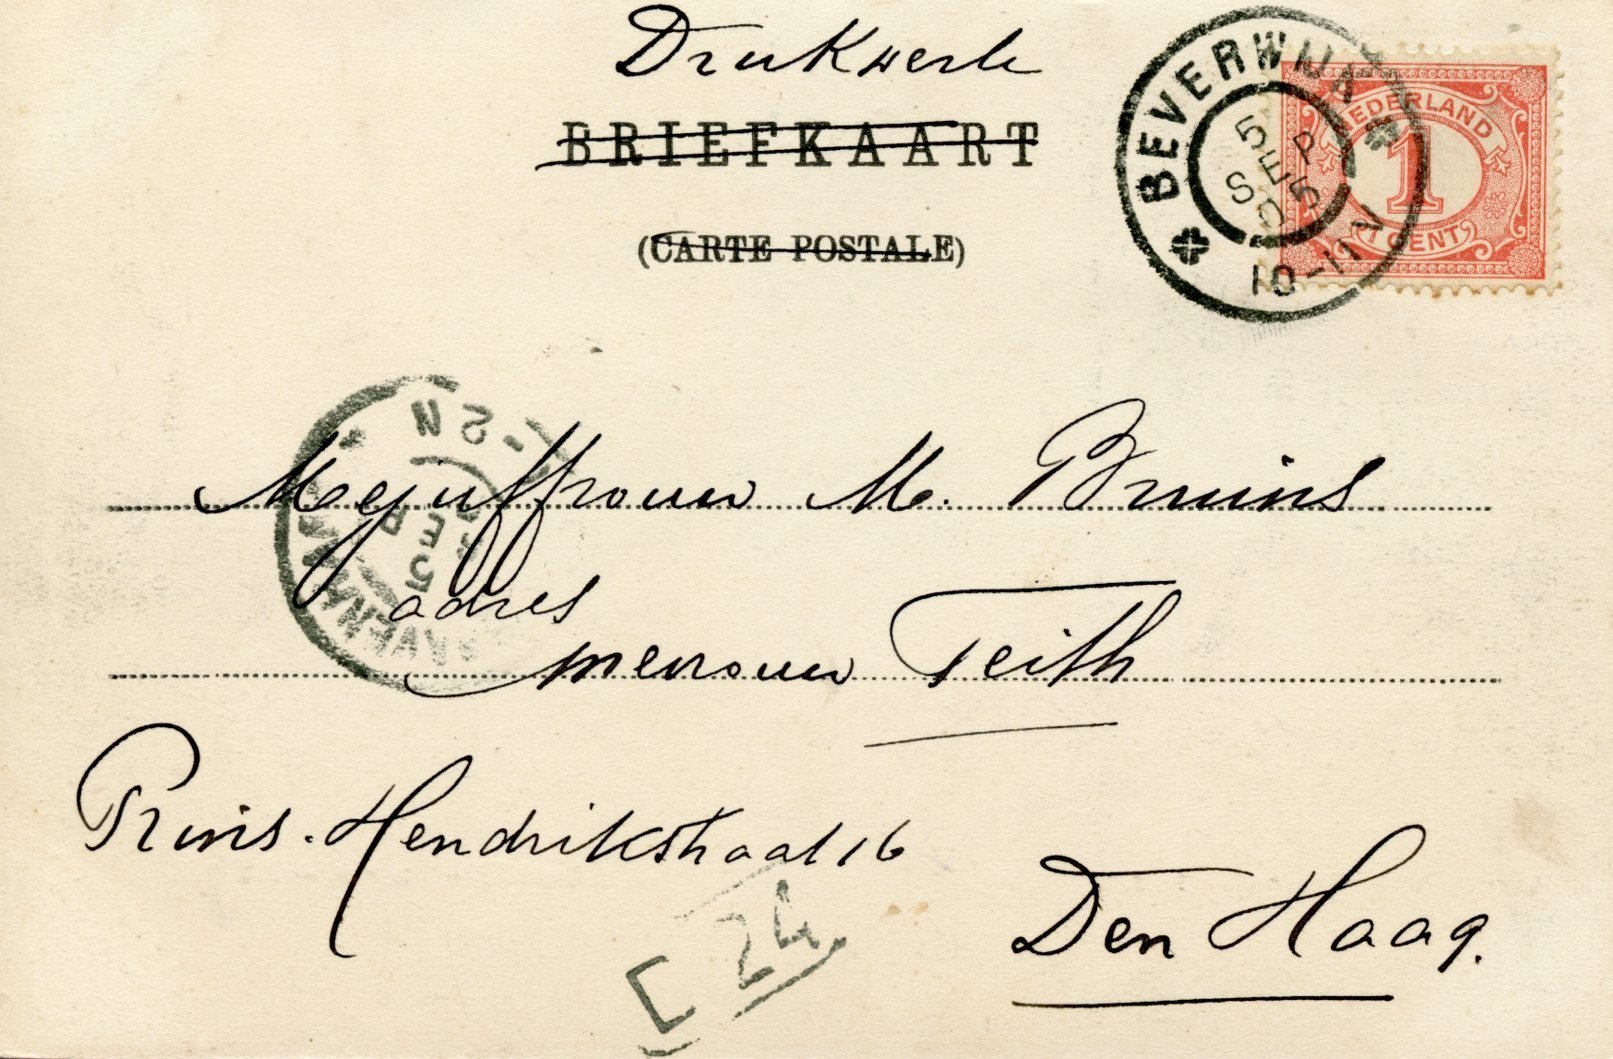 Drukwerk
BRIEFKAART
(CARTE POSTALE)
BEVERWIJK
5 SEP 05
10-11V
NEDERLAND
1
1 CENT
Mejuffrouw M. Bruins
adres
mevrouw Feith
Prins. Hendrikstraat 16
Den Haag.
24